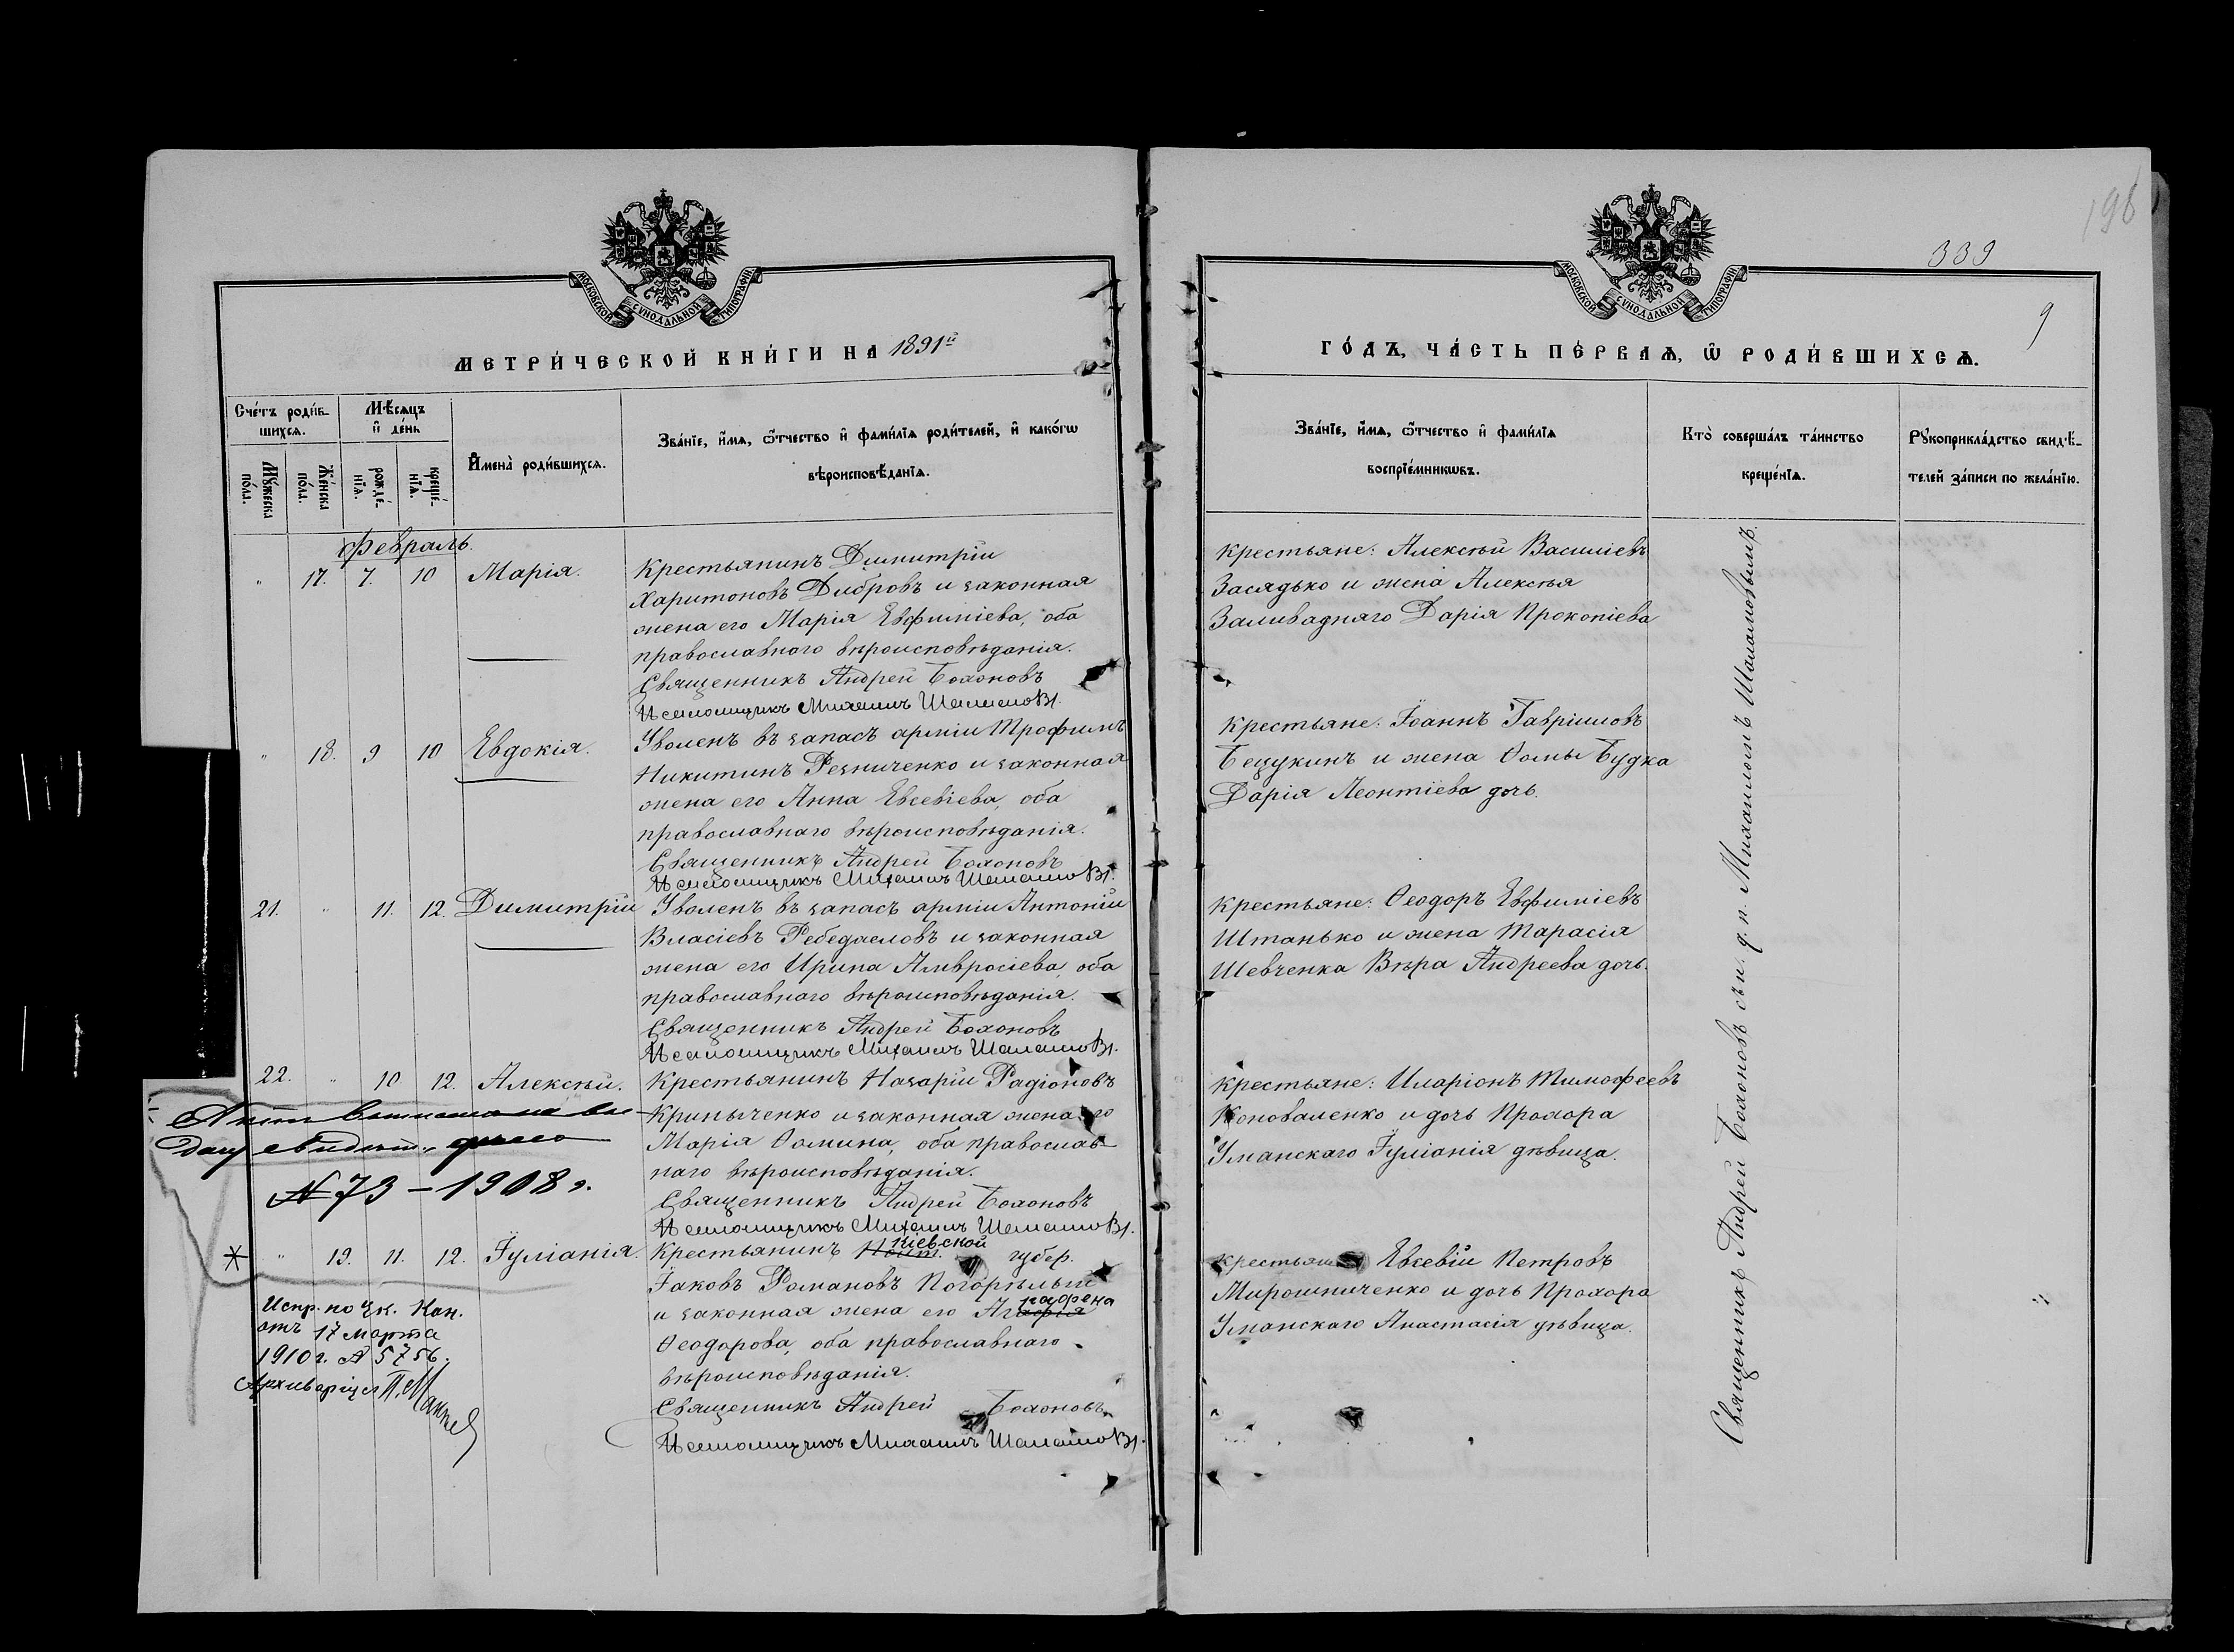 196
339
9
МОСКОВСКОЙ СѴНОДАЛЬНОЙ ТИПОГРАФІИ
МОСКОВСКОЙ СѴНОДАЛЬНОЙ ТИПОГРАФІИ
МЕТРИ́ЧЕСКОЙ КНИ́ГИ НА 1891й
ГО́ДЪ, ЧА́СТЬ ПЕ́РВАѦ, Ѿ РОДИ́ВШИХСѦ.
Сче́тъ роди́в-
шихсѧ.
Мѣ́сѧцъ
и҆ де́нь
Мꙋ́жеска
по́ла.
Же́нска
по́ла.
рожде́-
нїѧ.
креще́-
нїѧ.
И҆мена̀ роди́вшихсѧ.
Зва́нїе, и҆́мѧ, ѻ҆́тчество и҆ фамı́лїѧ роди́телей, и҆ како́гѡ
вѣроисповѣ́данїѧ.
Зва́нїе, и҆́мѧ, ѻ҆́тчество и҆ фамı́лїѧ
воспрїе́мникѡвъ.
Кто̀ соверша́лъ та́инство
креще́нїѧ.
Рꙋкоприкла́дство свидѣ́-
телей за́писи по жела́нїю.
Февраль.
" 17. 7. 10 Марія.
Крестьянинъ Димитрій
Харитоновъ Дибровъ и законная
жена его Марія Евфиміева, оба
православного вѣроисповѣданія.
Священникъ Андрей Бохоновъ
Псаломщикъ Михаилъ Шаламовъ.
Крестьяне: Алексѣй Василіевъ
Засядько и жена Алексѣя
Заливадняго Дарія Прокопіева
" 18. 9 10 Евдокія.
Уволенъ въ запасъ арміи Трофимъ
Никитинъ Резниченко и законная
жена его Анна Евсевіева, оба
православнаго вѣроисповѣданія.
Священникъ Андрей Бохоновъ
Псаломщикъ Михаилъ Шаламовъ.
Крестьяне: Іоаннъ Гавріиловъ
Бецукинъ и жена Ѳомы Будка
Дарія Леонтіева дочь.
21. " 11. 12. Димитрій
Уволенъ въ запасъ арміи Антоній
Власіевъ Ребедаеловъ и законная
жена его Ирина Амвросіева, оба
православнаго вѣроисповѣданія.
Священникъ Андрей Бохоновъ
Псаломщикъ Михаилъ Шаламовъ.
Крестьяне: Ѳеодоръ Евфиміевъ
Штанько и жена Тарасія
Шевченка Вѣра Андреева дочь.
22. " 10 12. Алексѣй.
Крестьянинъ Назарій Радіоновъ
Криныченко и законная жена его
Марія Ѳомина, оба православ-
наго вѣроисповѣданія.
Священникъ Андрей Бохоновъ
Псаломщикъ Михаилъ Шаламовъ.
Крестьяне: Иларіонъ Тимофеевъ
Коноваленко и дочь Прохора
Уманскаго Іуліанія дѣвица.
№ 73 – 1908 г.
* " 19. 11. 12. Іуліанія.
Крестьянинъ Кіевской губер.
Іаковъ Романовъ Погорѣлый
и законная жена его Агафена
Ѳеодорова, оба православнаго
вѣроисповѣданія.
Священникъ Андрей Бохоновъ
Псаломщикъ Михаилъ Шаламовъ.
Крестьяне Евсевій Петровъ
Мирошниченко и дочь Прохора
Уманскаго Анастасія дѣвица.
Испр. по Ук. Кон.
отъ 17 Марта
1910 г. № 5756.
Архиваріусъ П.
Священникъ Андрей Бохоновъ съ и. д. п. Михаиломъ Шаламовымъ.